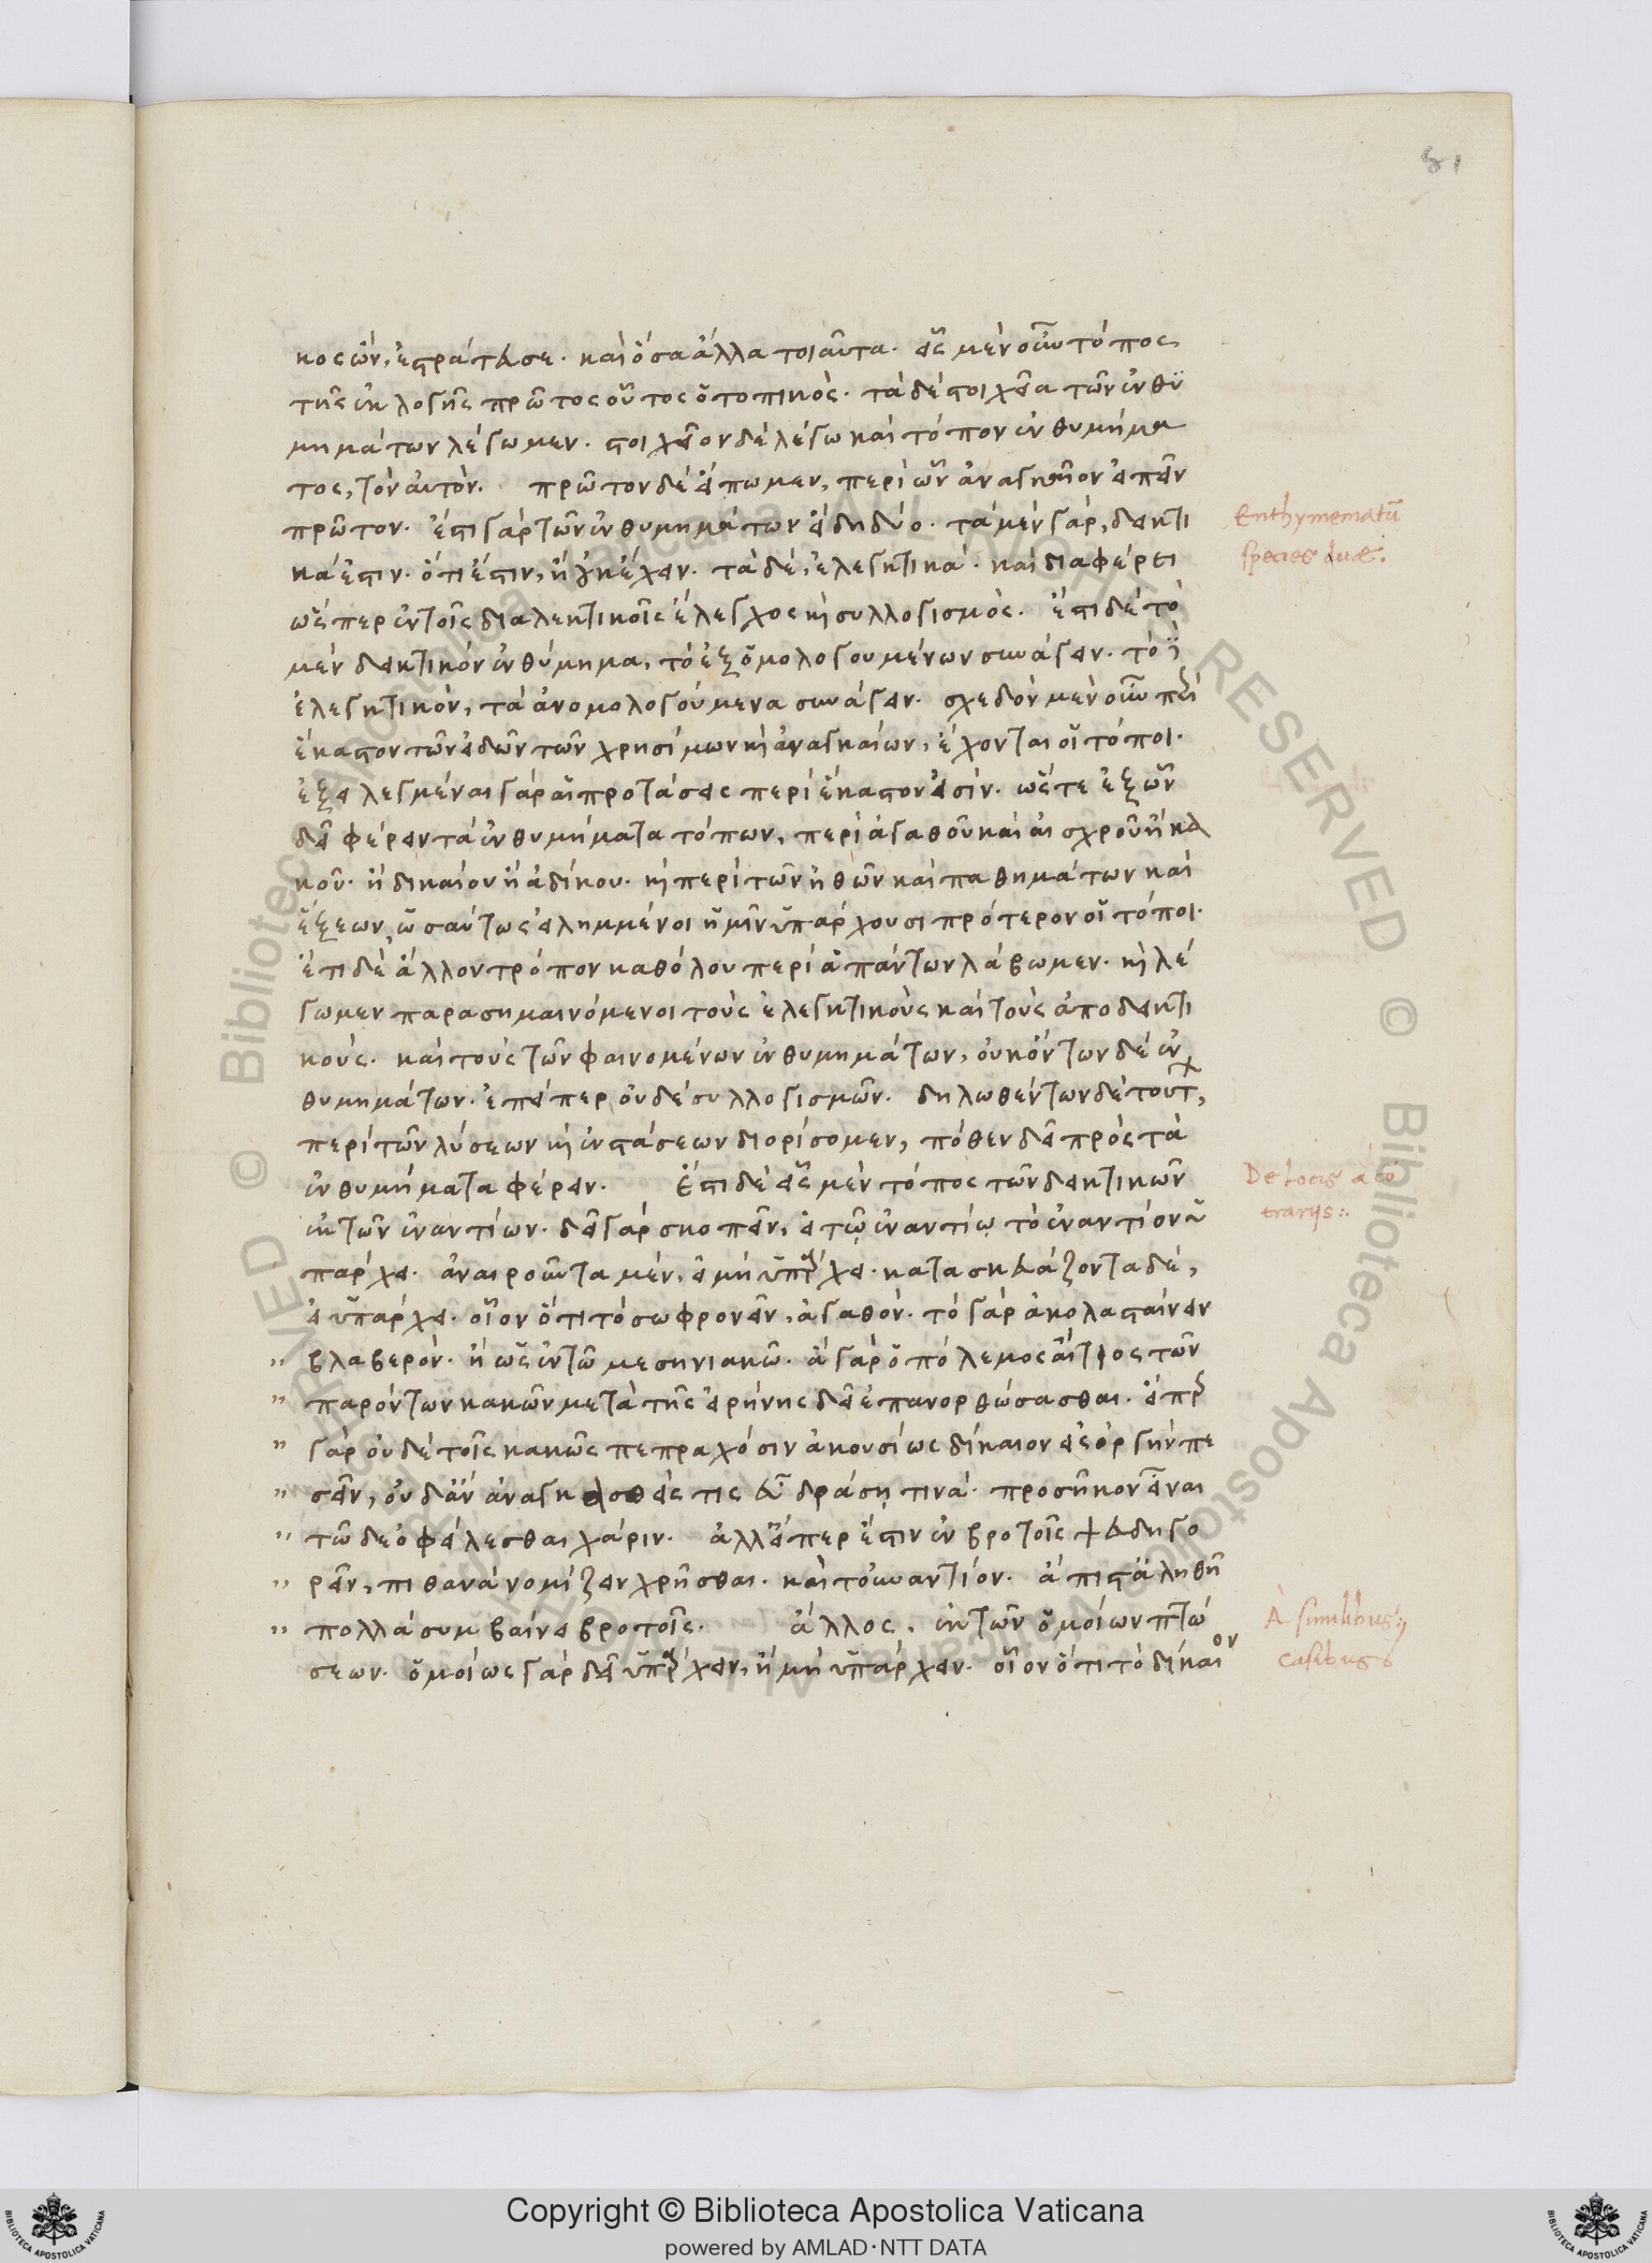 81
κος ὢν, ἐστράτευσε. καὶ ὅσα ἄλλα τοιαῦτα. εἷς μὲν οὖν τόπος
τῆς ἐκλογῆς πρῶτος οὗτος ὁ τοπικός. τὰ δὲ στοιχεῖα τῶν ἐνθυ
μημάτων λέγωμεν. στοιχεῖον δὲ λέγω καὶ τόπον ἐνθυμήμα
τος, τὸν αὐτόν. πρῶτον δὲ εἴπωμεν, περὶ ὧν ἀναγκαῖον εἰπεῖν
πρῶτον. ἔστι γὰρ τῶν ἐνθυμημάτων εἴδη δύο. τὰ μὲν γὰρ, δεικτι
κά ἐστιν. ὅτι ἔστιν, ἢ οὐκ ἔχειν. τὰ δὲ, ἐλεγκτικά. καὶ διαφέρει
ὥσπερ ἐν τοῖς διαλεκτικοῖς ἔλεγχος καὶ συλλογισμός. ἔστι δὲ τὸ
μὲν δεικτικὸν ἐνθύμημα, τὸ ἐξ ὁμολογουμένων συνάγειν. τὸ δὲ
ἐλεγκτικὸν, τὰ ἀνομολογούμενα συνάγειν. σχεδὸν μὲν οὖν περὶ
ἕκαστον τῶν εἰδῶν τῶν χρησίμων καὶ ἀναγκαίων, ἔχονται οἱ τόποι.
ἐξειλεγμέναι γὰρ αἱ προτάσεις περὶ ἕκαστον εἰσίν. ὥστε ἐξ ὧν
δεῖ φέρειν τὰ ἐνθυμήματα τόπων, περὶ ἀγαθοῦ καὶ αἰσχροῦ ἢ κα
κοῦ. ἢ δικαίου ἢ ἀδίκου. καὶ περὶ τῶν ἠθῶν καὶ παθημάτων καὶ
ἕξεων, ὡσαύτως εἰλημμένοι ἡμῖν ὑπάρχουσι πρότερον οἱ τόποι.
ἔτι δὲ ἄλλον τρόπον καθόλου περὶ ἁπάντων λάβωμεν. καὶ λέ
γωμεν παρασημαινόμενοι τοὺς ἐλεγκτικοὺς καὶ τοὺς ἀποδεικτι
κούς. καὶ τοὺς τῶν φαινομένων ἐνθυμημάτων, οὐκ ὄντων δὲ ἐν
θυμημάτων. ἐπείπερ οὐδὲ συλλογισμῶν. δηλωθέντων δὲ τούτων,
περὶ τῶν λύσεων καὶ ἐνστάσεων διορίσομεν, πόθεν δεῖ πρὸς τὰ
ἐνθυμήματα φέρειν. Ἔστι δὲ εἷς μὲν τόπος τῶν δεικτικῶν
ἐκ τῶν ἐναντίων. δεῖ γὰρ σκοπεῖν, εἰ τῷ ἐναντίῳ τὸ ἐναντίον ὑ
πάρχει. ἀναιροῦντα μὲν, εἰ μὴ ὑπάρχει. κατασκευάζοντα δὲ,
εἰ ὑπάρχει. οἷον ὅτι τὸ σωφρονεῖν, ἀγαθόν. τὸ γὰρ ἀκολασταίνειν
" βλαβερόν. ἢ ὡς ἐν τῷ μεσηνιακῷ. εἰ γὰρ ὁ πόλεμος αἴτιος τῶν
" παρόντων κακῶν μετὰ τῆς εἰρήνης δεῖ ἐπανορθώσασθαι. εἴπερ
" γὰρ οὐδὲ τοῖς κακῶς πεπραχόσιν ἀκουσίως δίκαιον εἰς ὀργὴν πε
" σεῖν, οὐδ' ἂν ἀναγκασθείς τις εὖ δράσῃ τινά. προσῆκον εἶναι
" τῷδε ὀφείλεσθαι χάριν. ἀλλ' εἴπερ ἔστιν ἐν βροτοῖς ψευδηγο
" ρεῖν, πιθανὰ νομίζειν χρῆσθαι. καὶ τοὐναντίον. ἄπιστ' ἀληθῆ
" πολλὰ συμβαίνει βροτοῖς. ἄλλος, ἐκ τῶν ὁμοίων πτώ
σεων. ὁμοίως γὰρ δεῖ ὑπάρχειν, ἢ μὴ ὑπάρχειν. οἷον ὅτι τὸ δίκαιον
Enthymematū
species duæ.
De locis a cō
trarijs:.
A similibus
casibus
Copyright © Biblioteca Apostolica Vaticana
powered by AMLAD·NTT DATA